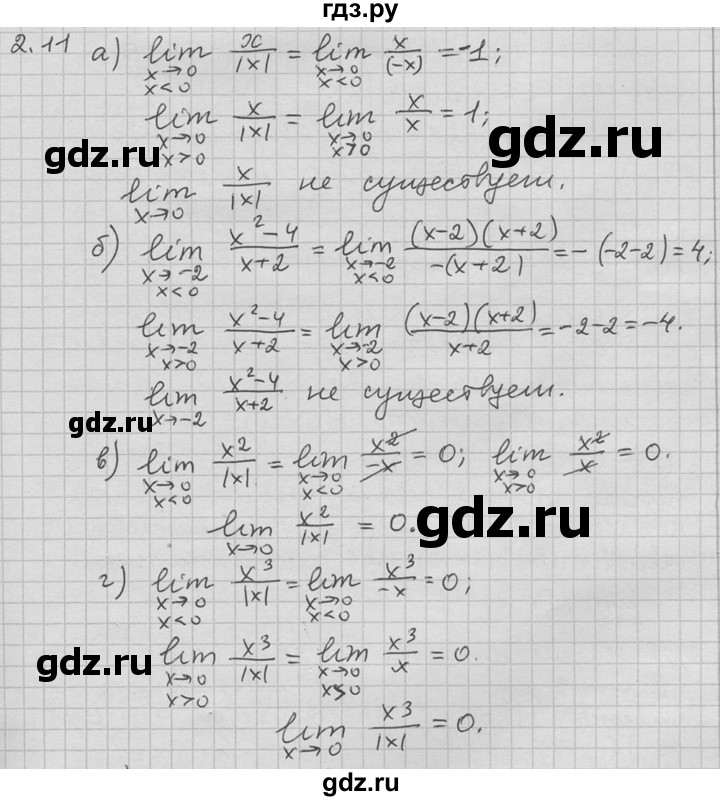 гдз.ру
2.11 а) lim x→0 x<0 x/|x| = lim x→0 x<0 x/(-x) = -1;
lim x→0 x>0 x/|x| = lim x→0 x>0 x/x = 1;
gdz.ru gdz.ru
lim x→0 x/|x| не существует.
б) lim x→-2 x<0 x²-4/x+2 = lim x→-2 x<0 (x-2)(x+2)/-(x+2) = -(-2-2) = 4;
lim x→-2 x>0 x²-4/x+2 = lim x→-2 x>0 (x-2)(x+2)/x+2 = -2-2 = -4.
lim x→-2 x²-4/x+2 не существует.
gdz.ru
в) lim x→0 x<0 x²/|x| = lim x→0 x<0 x²/-x = 0; lim x→0 x>0 x²/x = 0.
lim x→0 x²/|x| = 0.
gdz.ru
г) lim x→0 x<0 x³/|x| = lim x→0 x<0 x³/-x = 0;
lim x→0 x>0 x³/|x| = lim x→0 x>0 x³/x = 0.
gdz.ru
lim x→0 x³/|x| = 0.
gdz.ru
gdz.ru